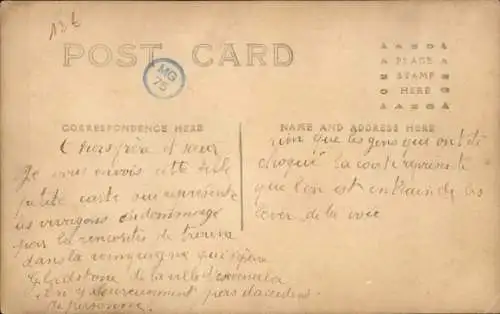 12 £
POST CARD
MG
75
PLACE
STAMP
HERE
CORRESPONDENCE HERE
NAME AND ADDRESS HERE
Chers frère et sœur
Je vous envois cette
petite carte qui représente
les wagons endommagé
par la rencontre de
dans la qui
Gladstone de la ville
il n'y heureusement pas d'accident
de personne.
rien que les gens qui ont été
choqué la carte représente
que l'on est en train de les
lever de la voie